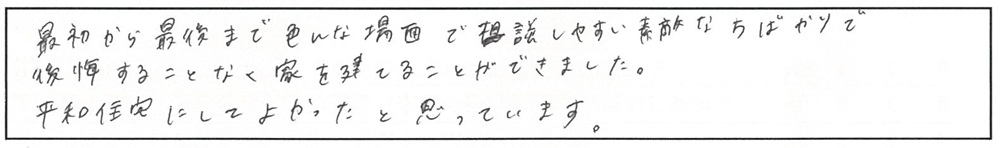 最初から最後まで色んな場面で想談しやすい素敵なちばかりで
後悔することなく家を建てることができました。
平和住宅にしてよかったと思っています。